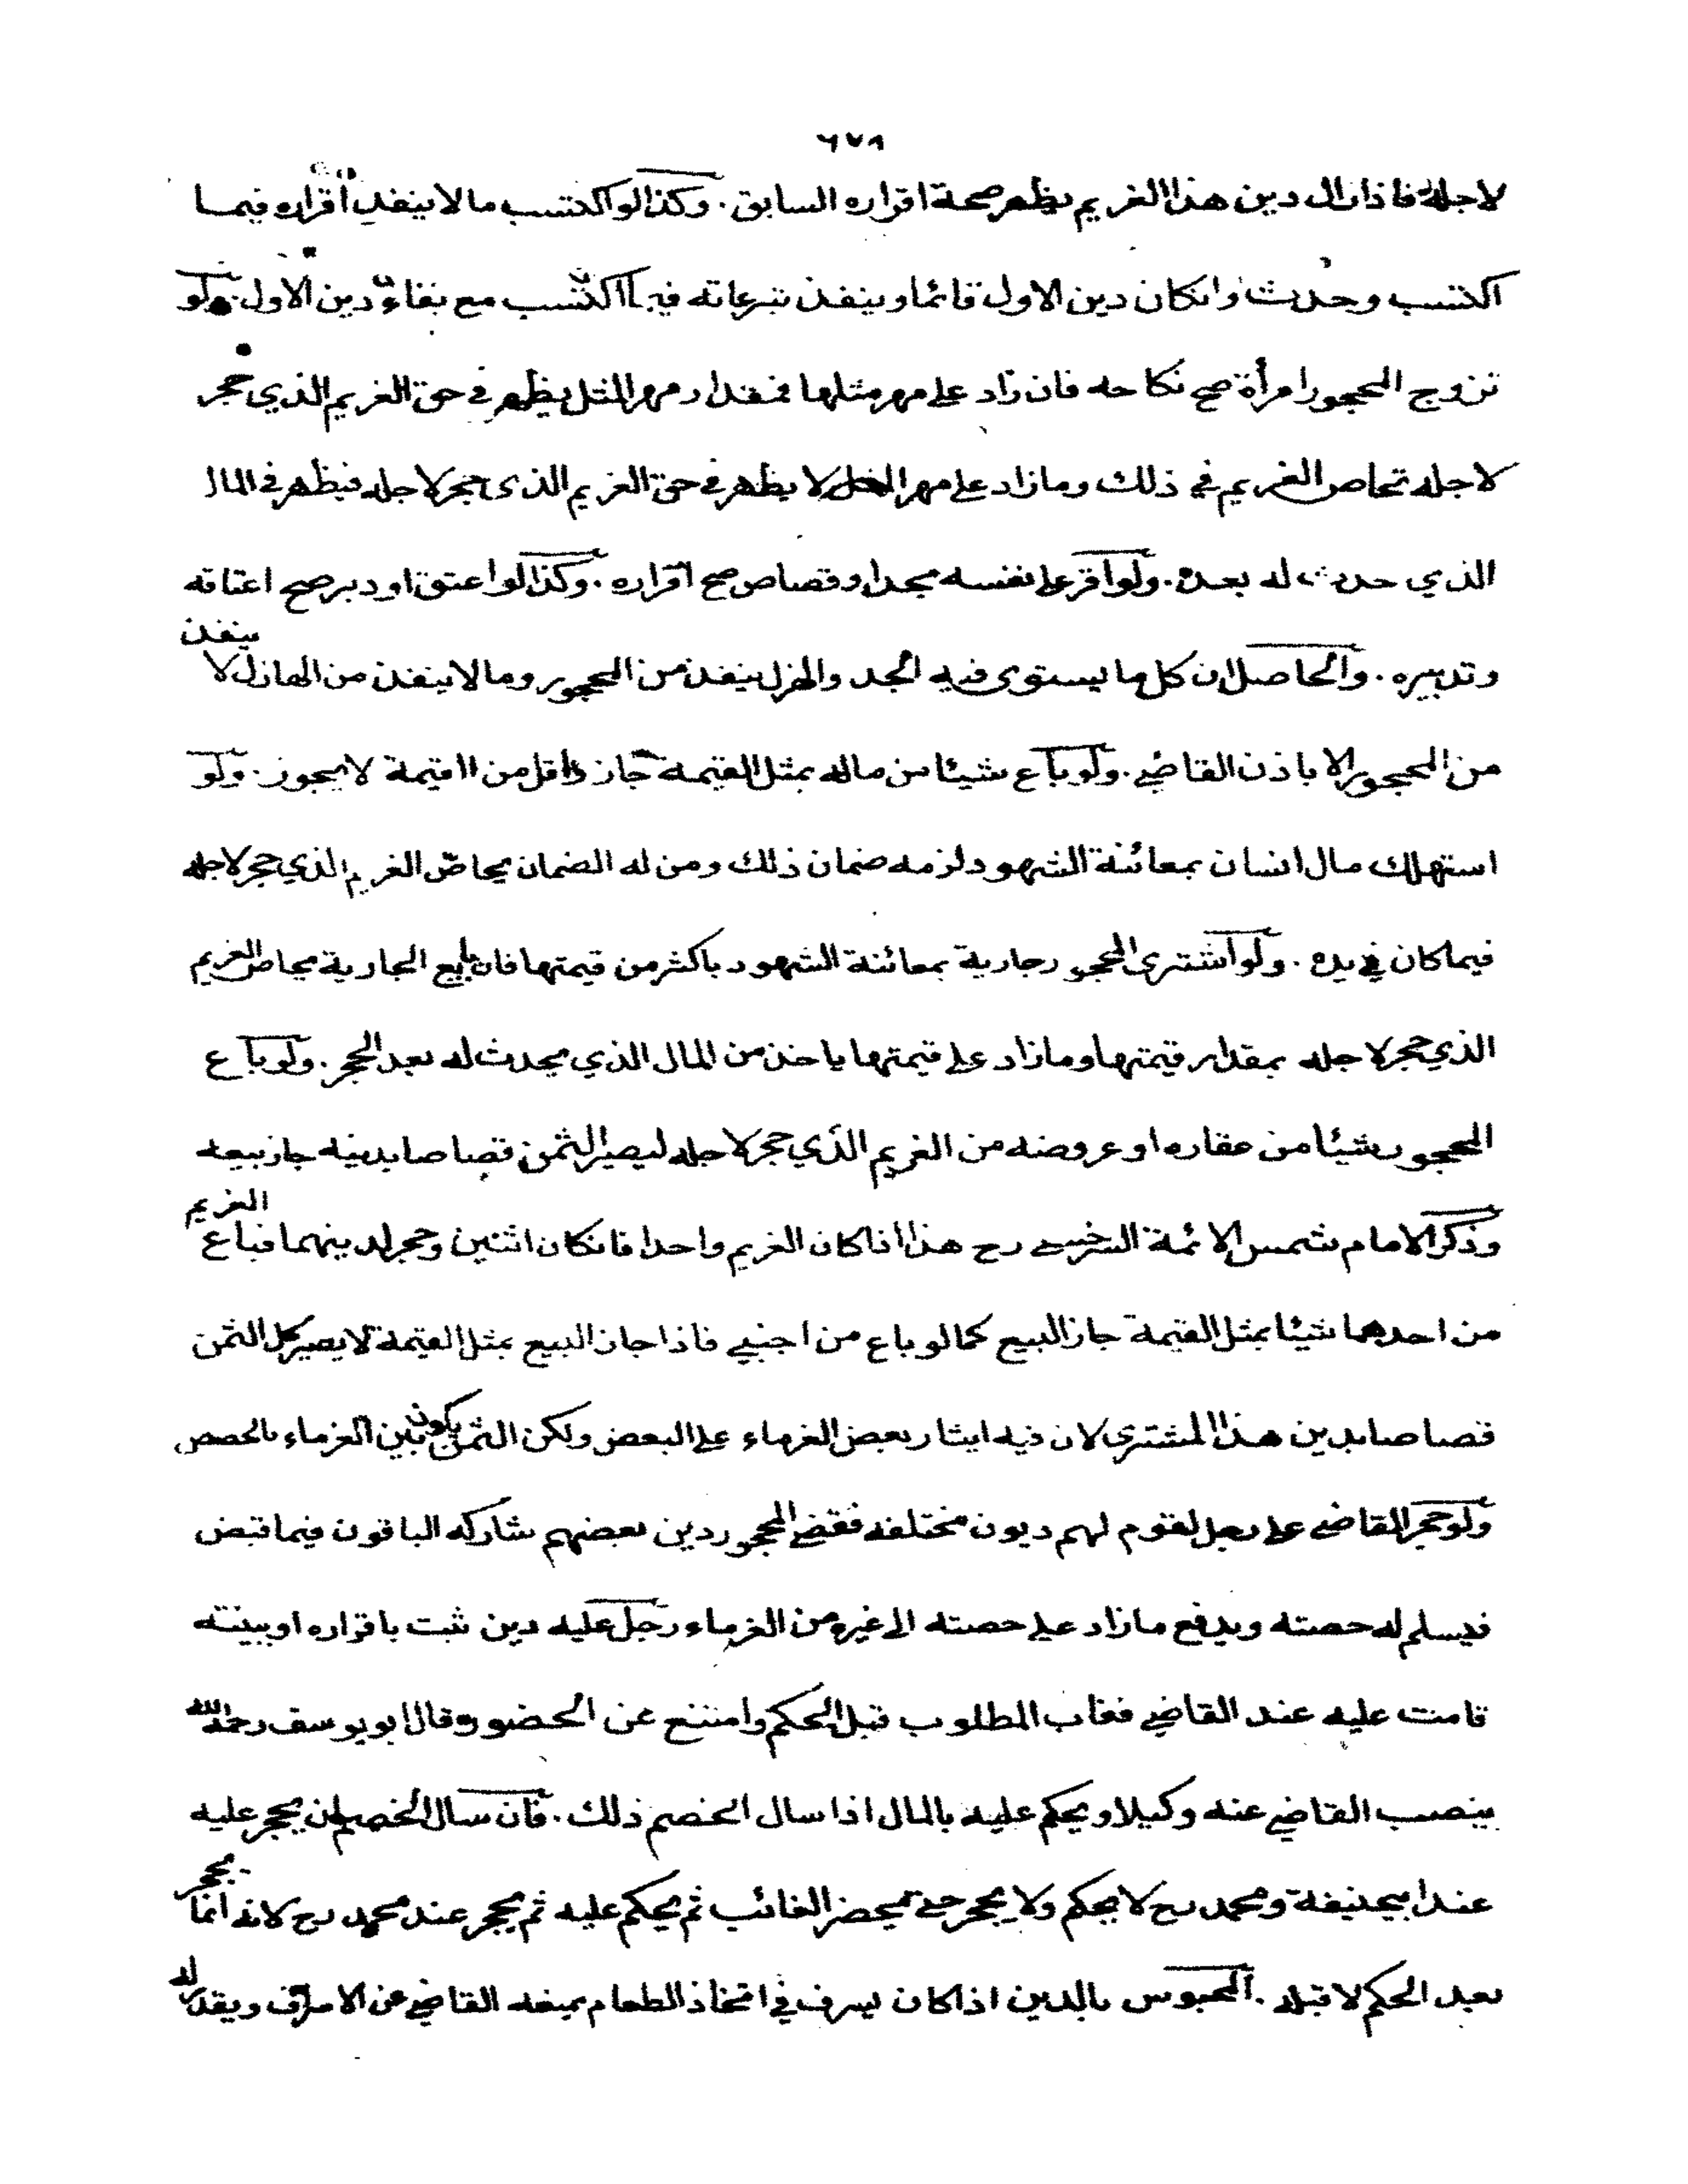 ٦٧٨
لاجله فاذا زال دين هذا الغريم يظهر صحة اقراره السابق . وكذا لو اكتسب مالا ينفذ اقراره فيما
اكتسب وحدث وانكان دين الاول قائما وينفذ تبرعاته فيما اكتسب مع بقاء دين الاول . ولو
تزوج المحجور امرأة صح نكاحه فان زاد على مهر مثلها فمقدار مهر المثل يظهر في حق الغريم الذي حجر
لاجله تحاص الغريم في ذلك ومازاد على مهر المثل لا يظهر في حق الغريم الذى حجر لاجله فيظهر في المال
الذي حدث له بعده . ولو اقر على نفسه بحد او قصاص صح اقراره . وكذا لو اعتق او دبر صح اعتاقه
وتدبيره . والحاصل ان كل ما يستوى فيه الجد والهزل ينفذ من المحجور وما لا ينفذ من الهازل لا ينفذ
من المحجور الا باذن القاضي . ولو باع شيئا من ماله بمثل القيمة جاز باقل من القيمة لا يجوز . ولو
استهلك مال انسان بمعائنة الشهود لزمه ضمان ذلك ومن له الضمان يحاص الغريم الذي حجر لاجله
فيما كان في يده . ولو اشترى المحجور جارية بمعائنة الشهود باكثر من قيمتها فان بايع الجارية يحاص الغريم
الذي حجر لاجله بمقدار قيمتها ومازاد على قيمتها ياخذ من المال الذي يحدث له بعد الحجر . ولو باع
المحجور شيئا من عقاره او عروضه من الغريم الذي حجر لاجله ليصير الثمن قصاصا بدينه جاز بيعه
وذكر الامام شمس الائمة السرخسي رح هذا اذا كان الغريم واحدا فانكان اثنين وحجر لدينهما فباع الغريم
من احدهما شيئا بمثل القيمة جاز البيع كما لو باع من اجنبي فاذا جاز البيع بمثل القيمة لا يصير كل الثمن
قصاصا بدين هذا المشتري لان فيه ايثار بعض الغرماء على البعض ولكن الثمن يكون بين الغرماء بالحصص
ولو حجر القاضي على رجل لقوم لهم ديون مختلفة فقضى المحجور دين بعضهم شاركه الباقون فيما قبض
فيسلم له حصته ويدفع مازاد على حصته الى غيره من الغرماء رجل عليه دين ثبت باقراره او ببينة
قامت عليه عند القاضي فغاب المطلوب قبل الحكم وامتنع عن الحضور وقال ابو يوسف رحمه الله
ينصب القاضي عنه وكيلا ويحكم عليه بالمال اذا سال الخصم ذلك . فان سال الخصم ان يحجر عليه
عند ابيحنيفة ومحمد رح لا يحكم ولا يحجر حتى يحضر الغائب ثم يحكم عليه ثم يحجر عند محمد رح لانه انما يحجر
بعد الحكم لا قبله . المحبوس بالدين اذا كان يسرف في اتخاذ الطعام يمنعه القاضي عن الاسراف ويقدر له